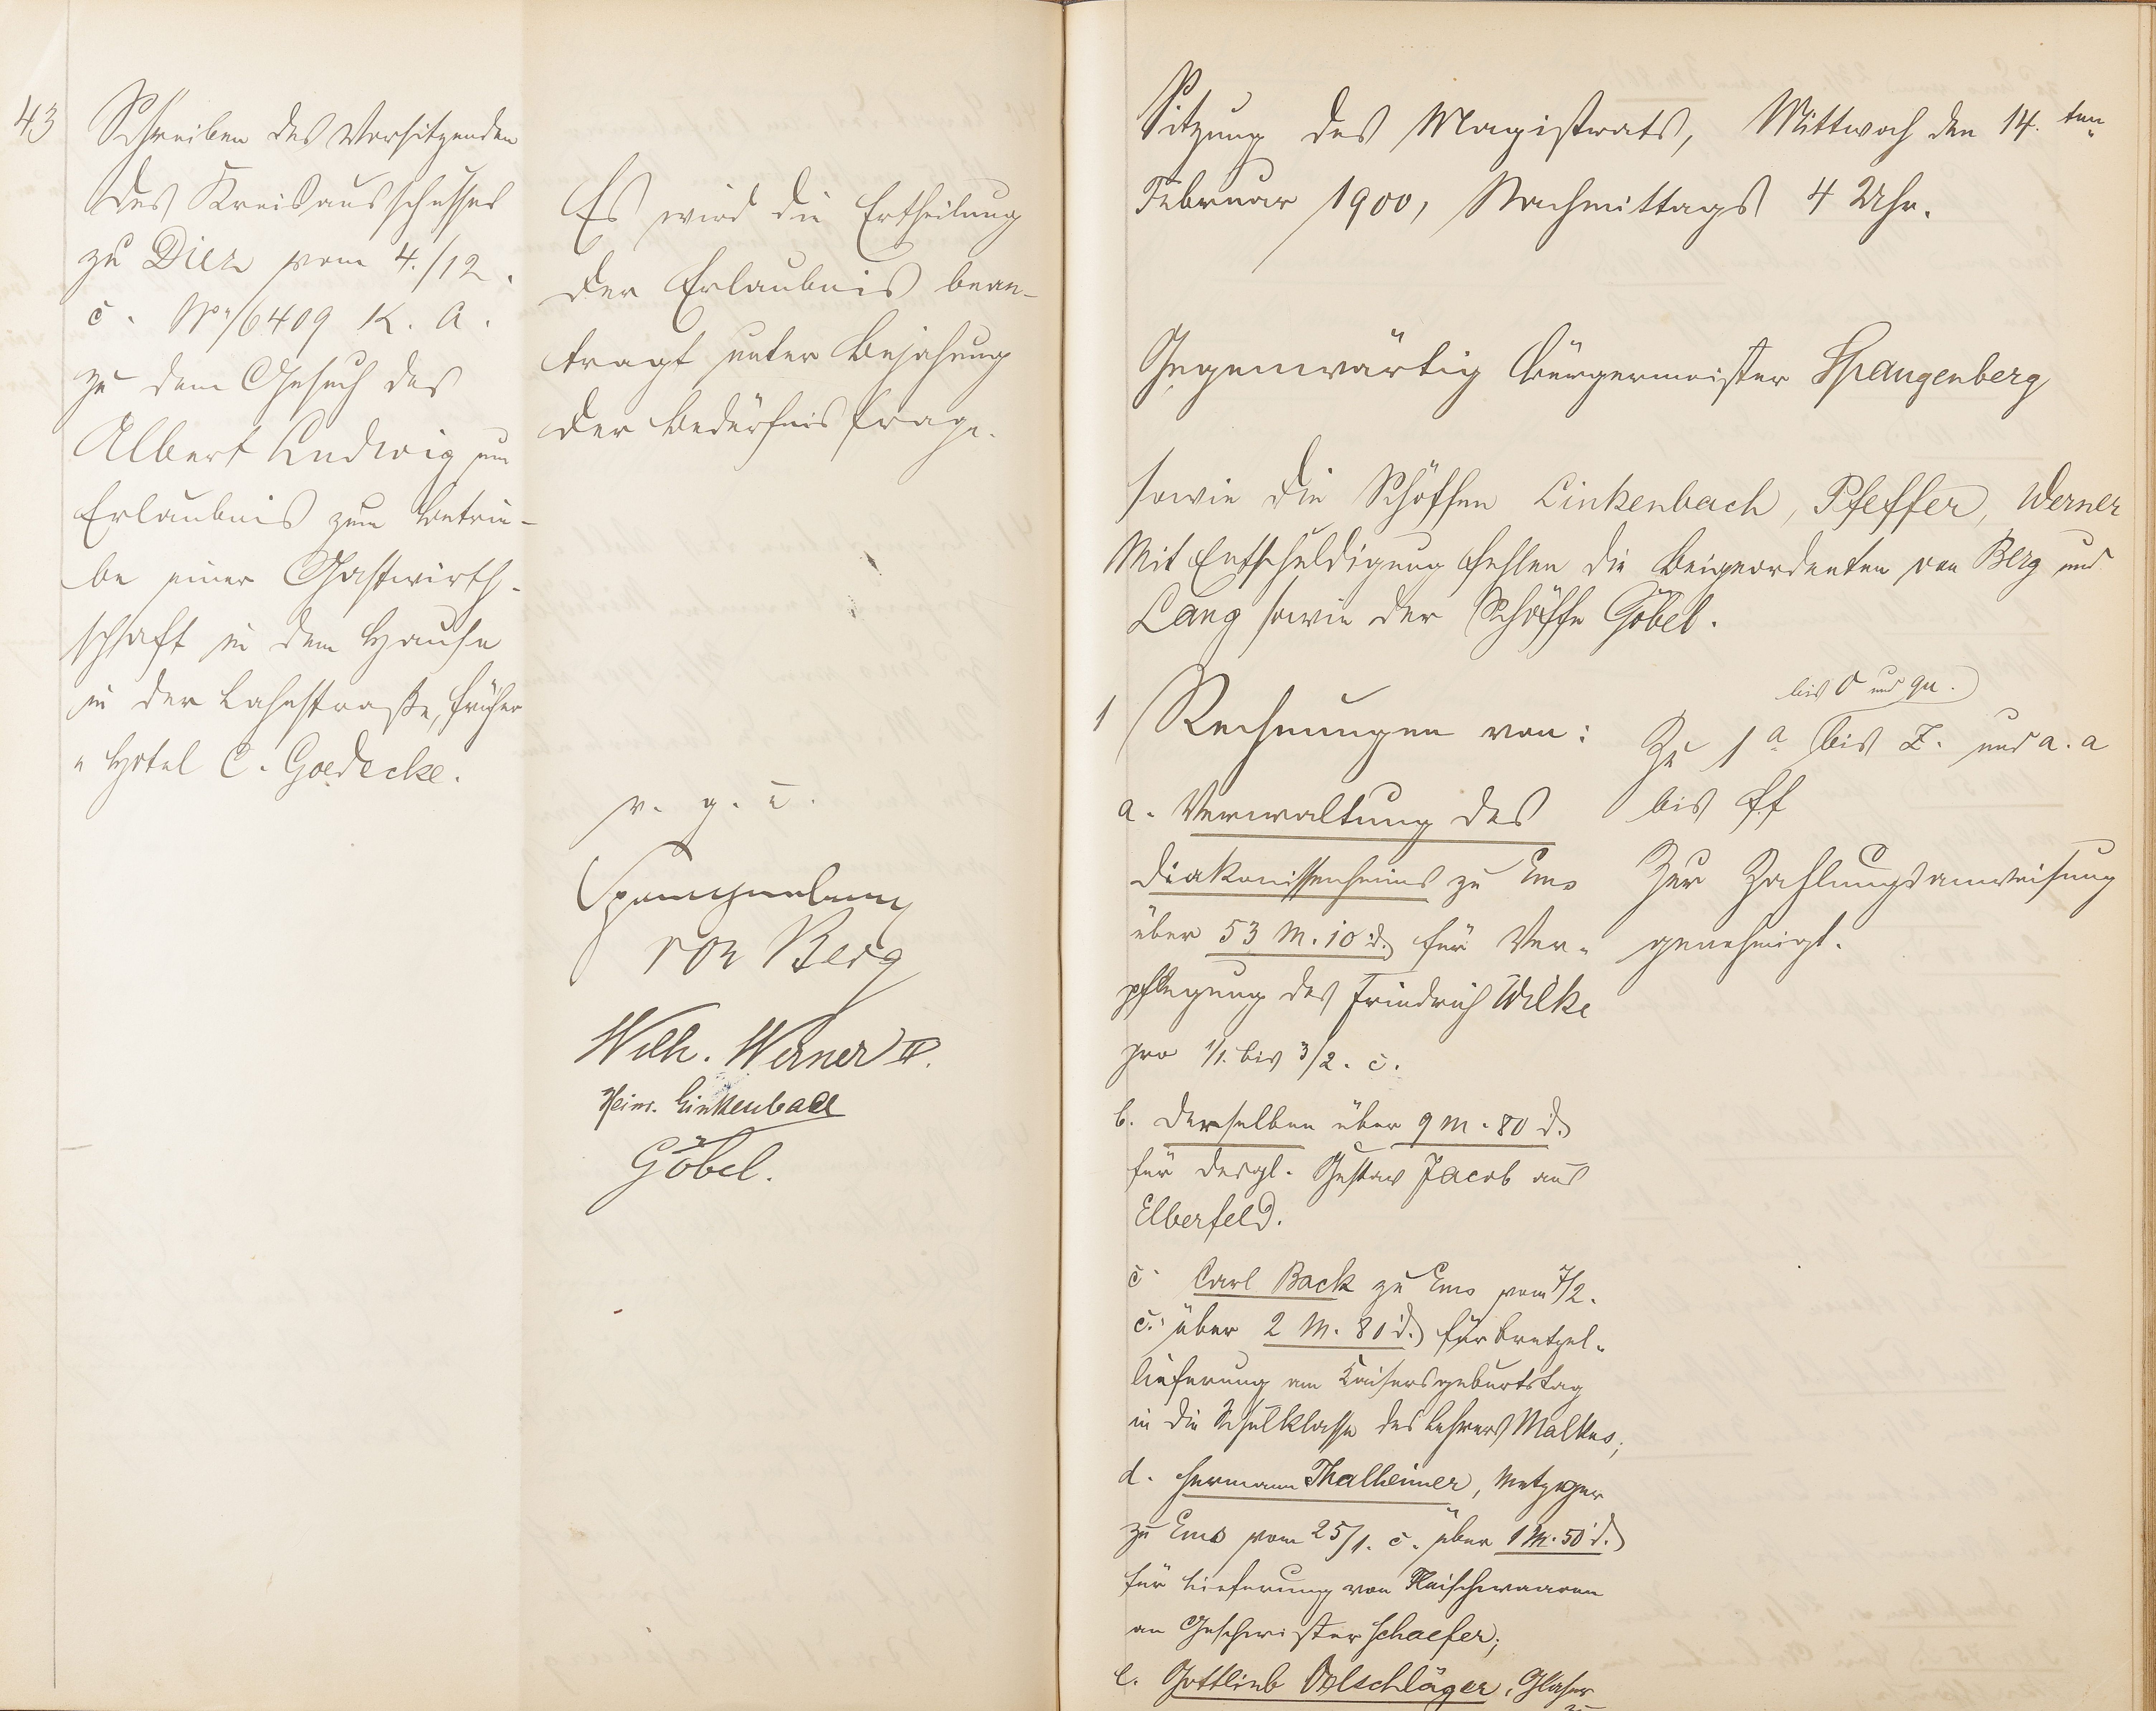 43
Schreiben des Vorsitzenden
des Kreisausschusses
zu Diez vom 4./12.
c. No 6409 K. A.
zu dem Gesuch des
Albert Ludwig um
Erlaubnis zum Betrie-
be einer Gastwirth-
schaft in dem Hause
in der Lahnstraße, früher
"Hotel C. Goedecke.
Es wird die Ertheilung
der Erlaubnis bean-
tragt unter Bejahung
der Bedürfnisfrage.
v. g. u.
Spangenberg
von Berg
Wilh. Werner
Heinr. Linkenbach
Göbel.
Sitzung des Magistrats, Mittwoch den 14. ten
Februar 1900, Nachmittags 4 Uhr.
Gegenwärtig Bürgermeister Spangenberg
sowie die Schöffen Linkenbach, Pfeffer, Werner
Mit Entschuldigung fehlen die Beigeordneten von Berg und
Lang sowie der Schöffe Göbel.
1 Rechnungen von:
a. Verwaltung des
Diakonissenheims zu Ems
über 53 M. 10 d. für Ver-
pflegung des Friedrich Wilke
pro 1/1. bis 3/2. c.
b. Derselben über 9 M. 80 d.
für desgl. Gustav Jacob aus
Elberfeld.
c. Carl Back zu Ems vom 7/2.
c. über 2 M. 80 d. für Bretzel-
lieferung am Kaisersgeburtstag
in die Schulklasse des Lehrers Malkus;
d. Hermann Thalheimer, Metzger
zu Ems vom 25/1. c. über 1 M. 50 d.
für Lieferung von Fleischwaaren
an Geschwister Schaefer;
e. Gottlieb Oelschläger, Glaser
zu
bis O und qu.
Zu 1 a bis Z. und a. a
bis ff
Zur Zahlungsanweisung
genehmigt.